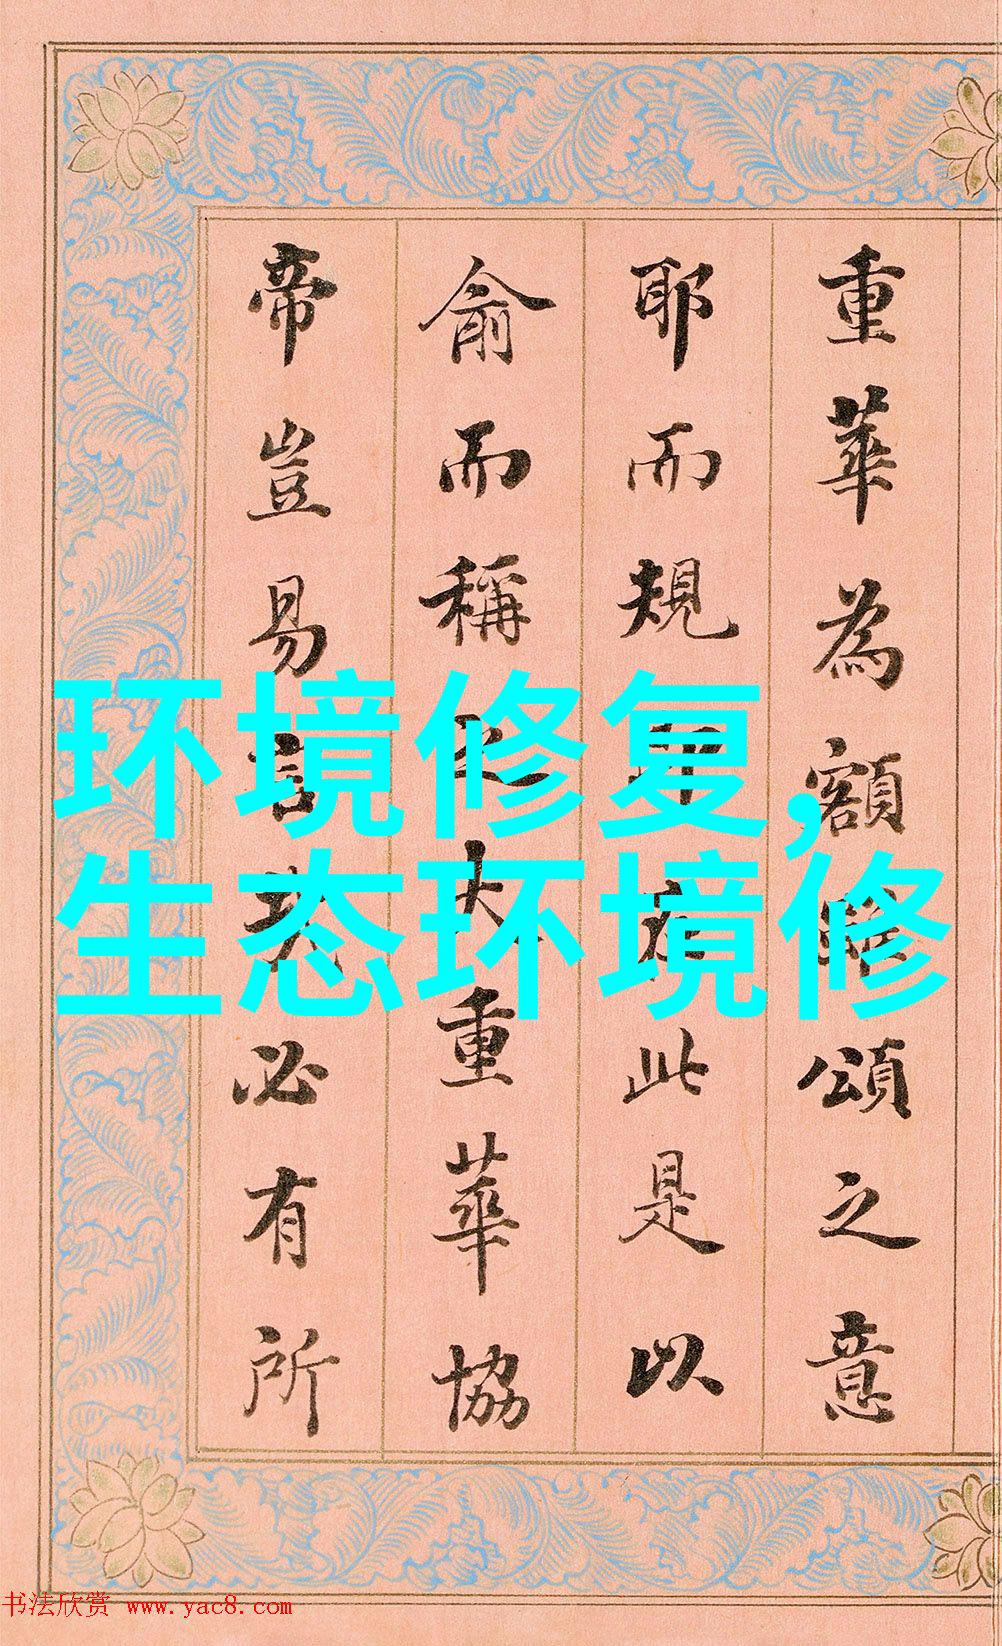 重華為額頌之意
耶而規在此是以
俞而稱之大重華協
帝豈易言哉必有所
环境修复,
生态环境修
书法欣赏 www.yac8.com